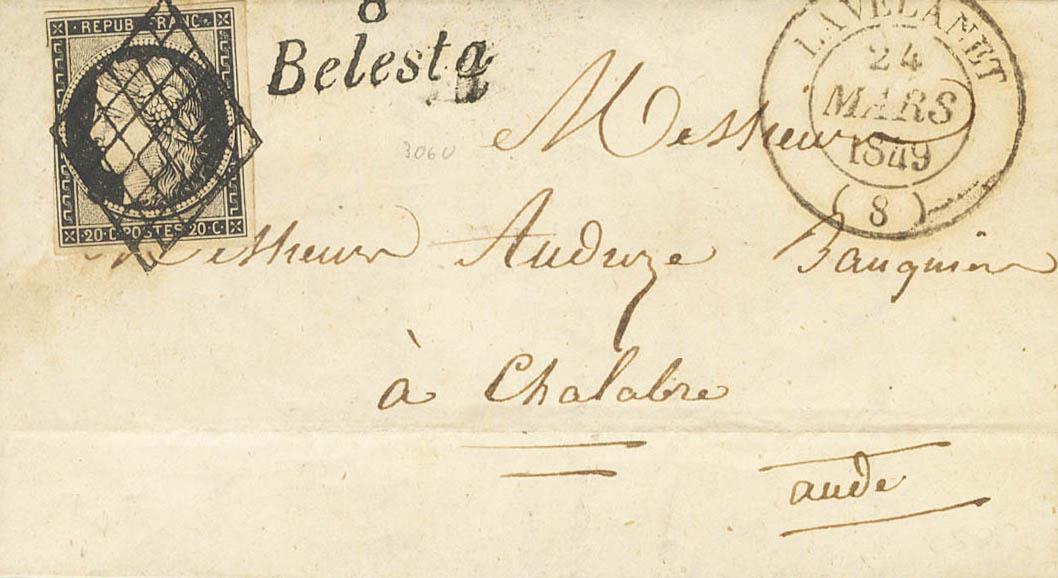 REPUB. FRANC.
20.C. POSTES 20.C.
8
Belesta
LAVELANET
24
MARS
1849
(8)
3060
Messieurs
Messieurs Auduze Banquiers
à Chalabre
aude